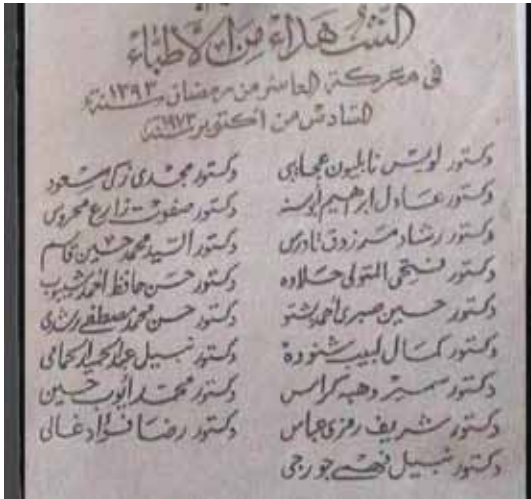 الشهداء من الأطباء
فى معركة العاشر من رمضان سنة ١٣٩٣
السادس من اكتوبر سنة ١٩٧٣
دكتور لويس نابليون عجايبى
دكتور عادل ابراهيم أبو
دكتور رشاد مرزوق تادرس
دكتور فتحى المتولى حلاوه
دكتور حسين صبرى احمد
دكتور كمال لبيب شنودة
دكتور سمير وهبه كراس
دكتور شريف رمزى عباس
دكتور نبيل فهمى جورجى
دكتور مجدى زكى مسعود
دكتور صفوت زارع محروس
دكتور السيد محمد حسين قاسم
دكتور حسن حافظ احمد
دكتور حسن محمد مصطفى رشدى
دكتور نبيل عبد الحميد الحمامى
دكتور محمد ايوب حسين
دكتور رضا فؤاد غالى